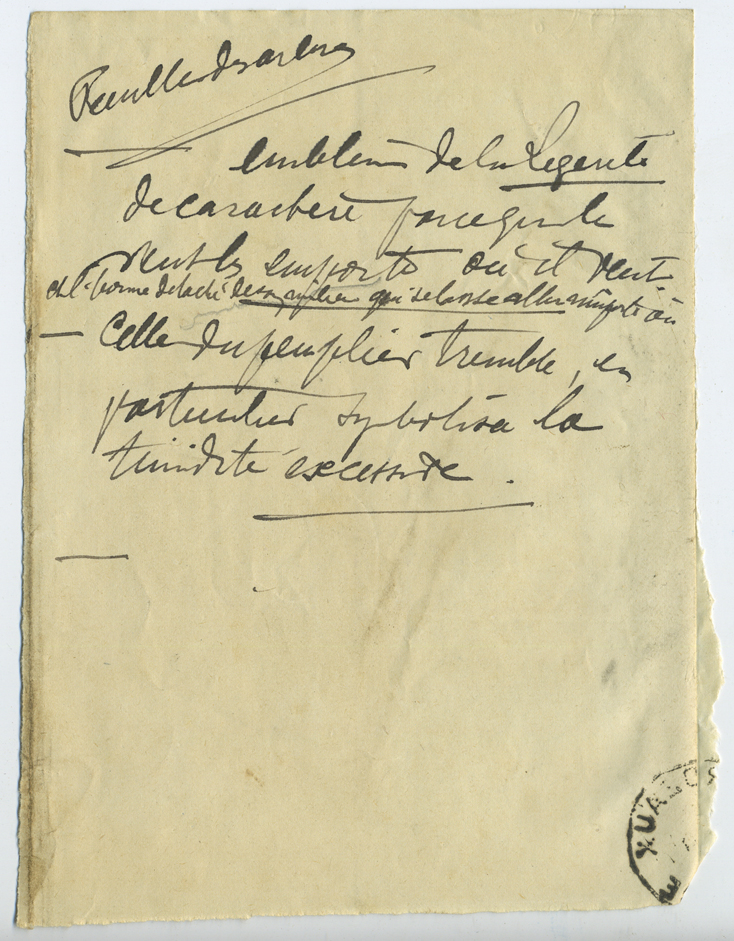 Feuilles des arbres
emblème de la Légèreté
de caractère parceque le
vent les emporte où il veut
et l'homme détaché de son milieu qui se laisse aller n'importe où
— Celle du peuplier tremble, en
particulier symbolisa la
timidité excessive.